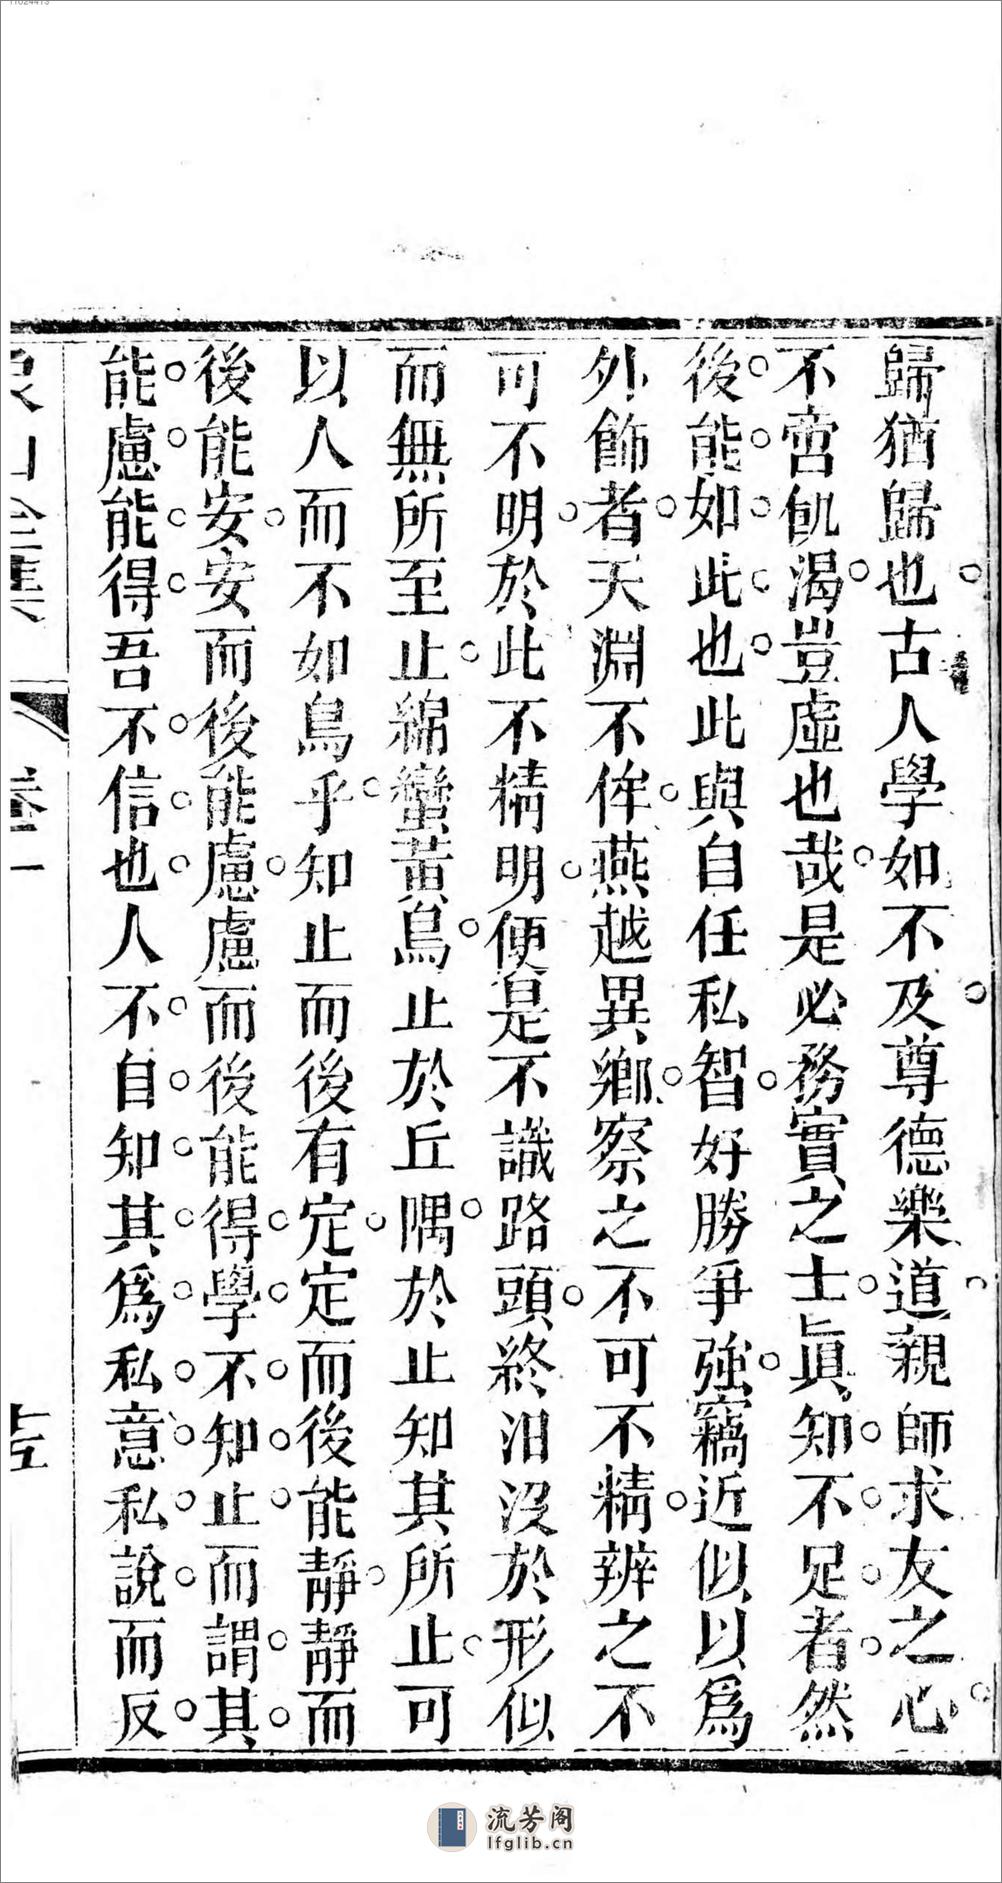 歸猶歸也古人學如不及尊德樂道親師求友之心
不啻飢渴豈虛也哉是必務實之士眞知不足者然
後能如此也此與自任私智好勝爭強竊近似以爲
外飾者天淵不侔燕越異鄉察之不可不精辨之不
可不明於此不精明便是不識路頭終汨沒於形似
而無所至止綿蠻黃鳥止於丘隅於止知其所止可
以人而不如鳥乎知止而後有定定而後能靜靜而
後能安安而後能慮慮而後能得學不知止而謂其
能慮能得吾不信也人不自知其爲私意私說而反
象山全集 卷一
流芳阁
lfglib.cn